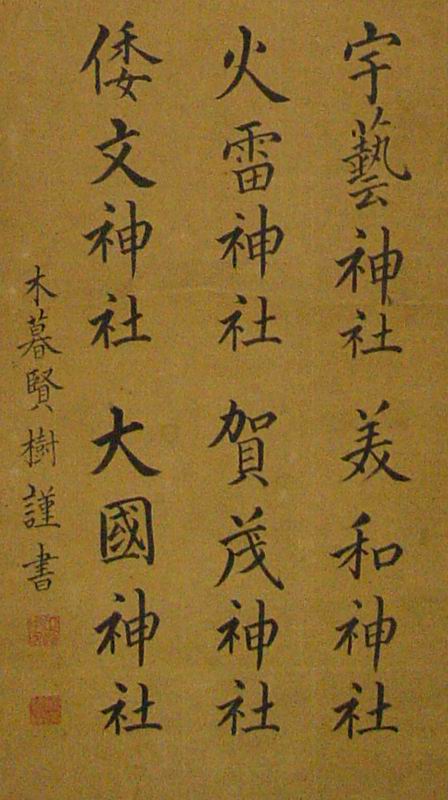 宇藝神社 美和神社
火雷神社 賀茂神社
倭文神社 大國神社
木暮賢樹謹書